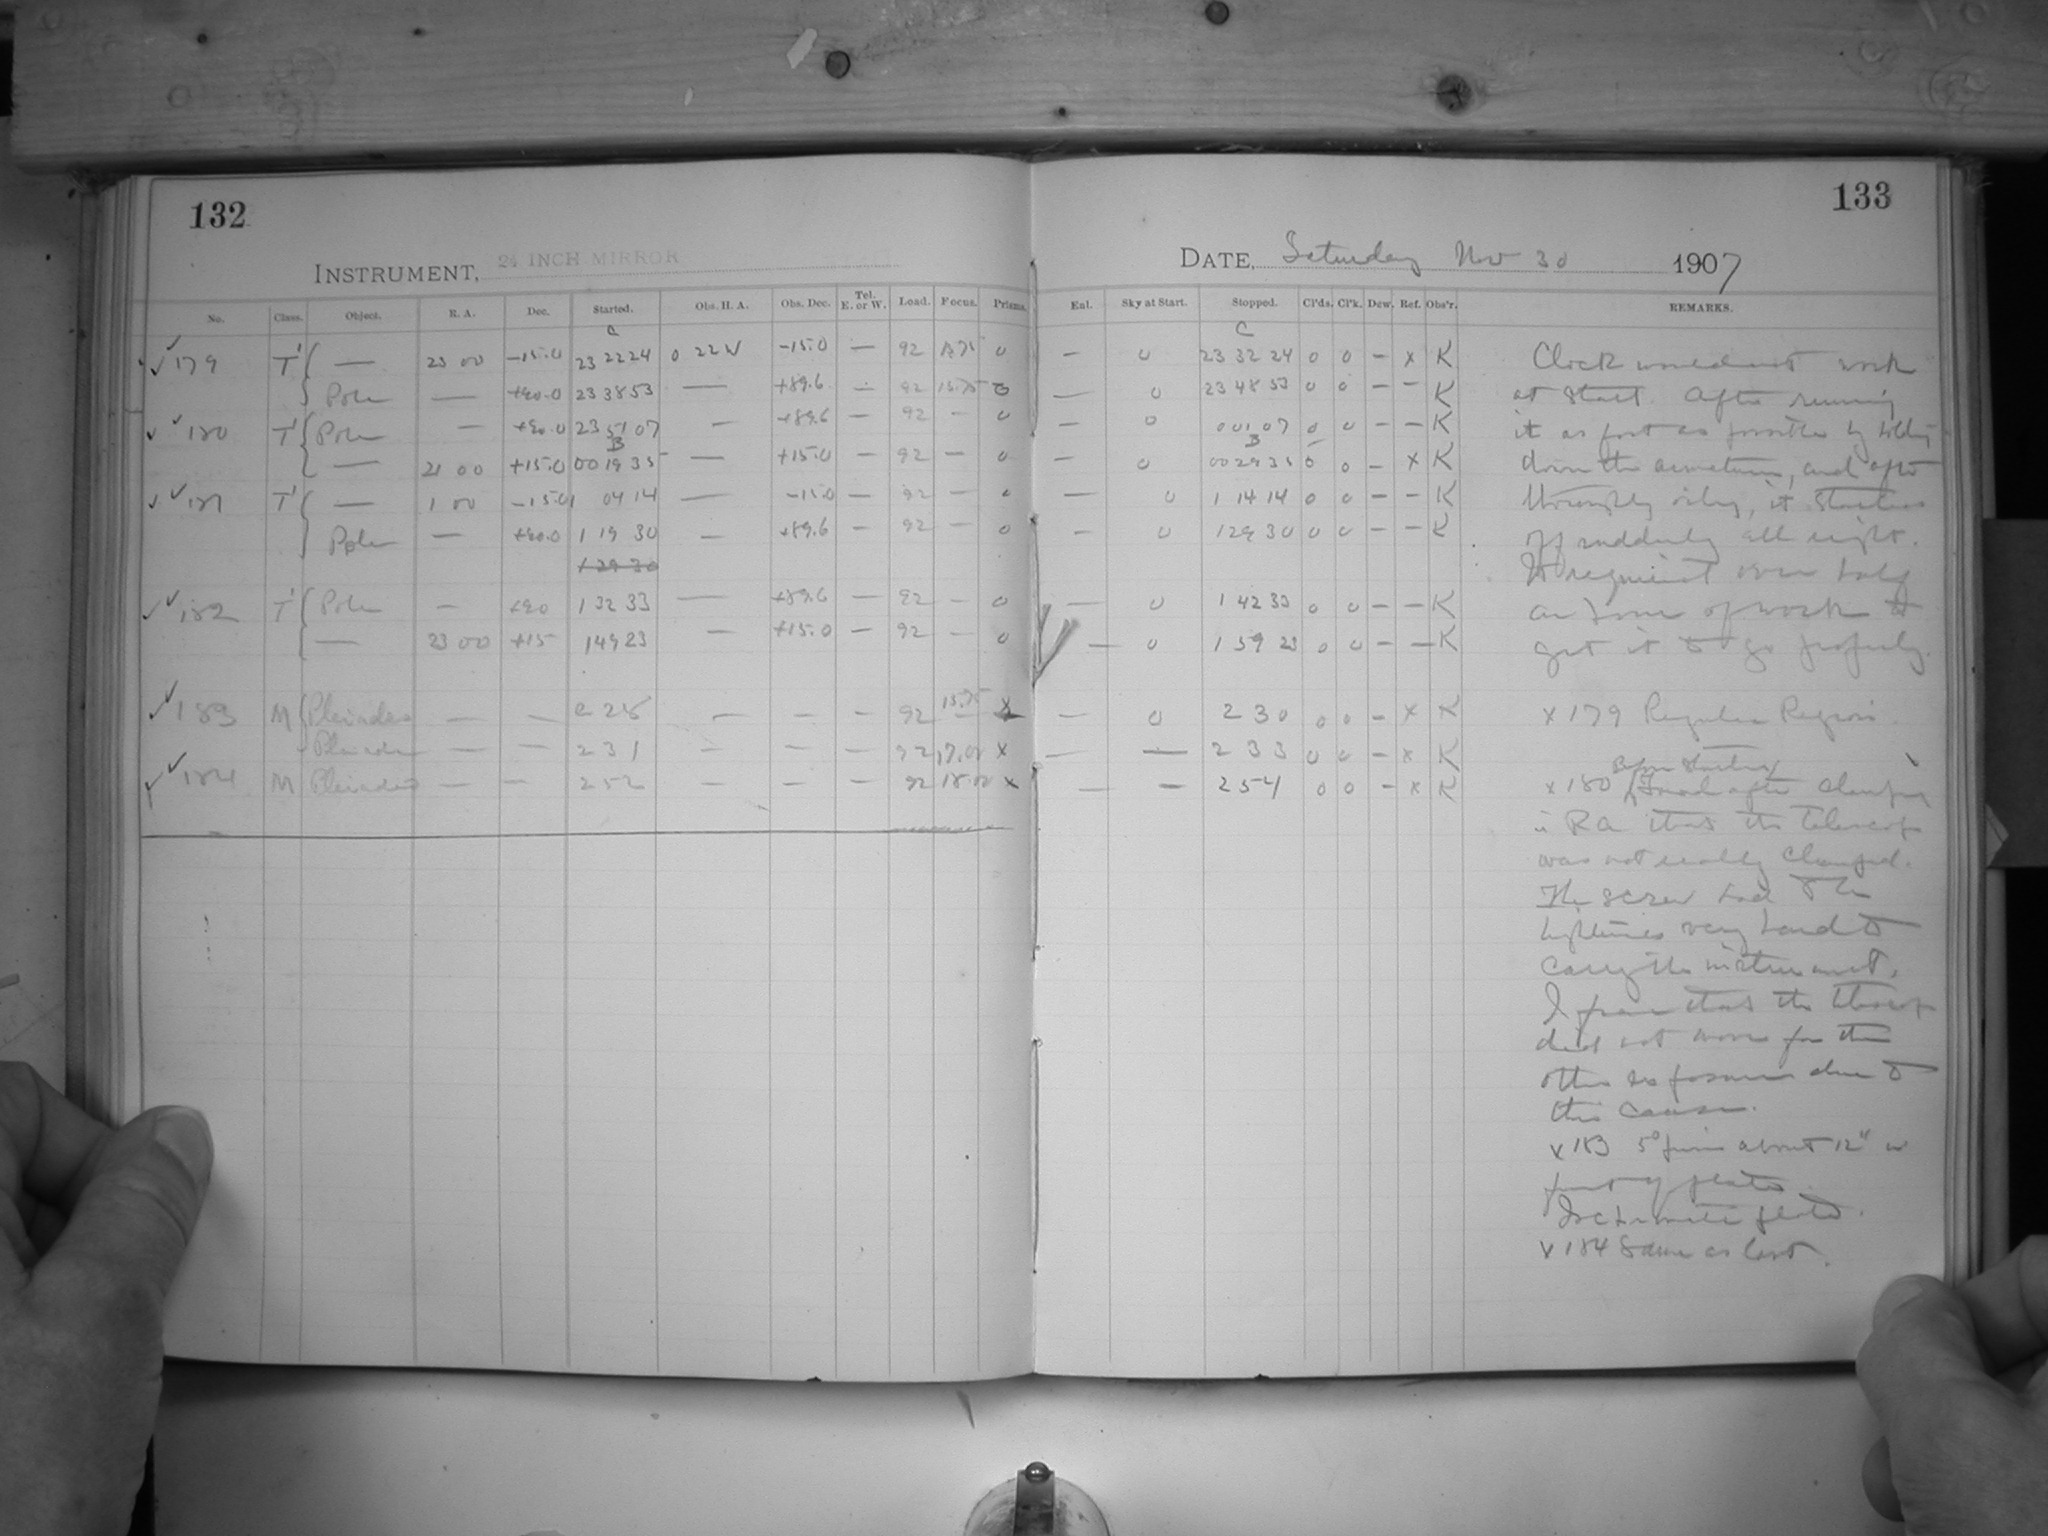 132
133
INSTRUMENT, 24 INCH MIRROR
DATE, Saturday Nov 30 1907
No. Class. Object. R. A. Dec. Started. Obs. H. A. Obs. Dec. Tel. E. or W. Load. Focus. Prisms. Eal. Sky at Start. Stopped. Cl'ds. Cl'k. Dew. Ref. Obs'r. REMARKS.
C C
179 T' — 23 00 -15.0 23 22 24 0 22 W -15.0 — 92 15.75 0 — 0 23 32 24 0 0 - x K
Pole — +90.0 23 38 53 — +89.6 — 92 15.75 0 — 0 23 48 53 0 0 - - K
180 T' Pole — +90.0 23 51 07 — +89.6 — 92 — 0 — 0 0 01 07 0 0 - - K
B B
— 21 00 +15.0 00 19 35 — +15.0 — 92 — 0 — 0 00 29 35 0 0 - x K
181 T' — 1 00 -15.0 1 04 14 — -15.0 — 92 — 0 — 0 1 14 14 0 0 - - K
Pole — +90.0 1 19 30 — +89.6 — 92 — 0 — 0 1 29 30 0 0 - - K
1 29 30
182 T' Pole — +90 1 32 33 — +89.6 — 92 — 0 — 0 1 42 33 0 0 - - K
— 23 00 +15 1 49 23 — +15.0 — 92 — 0 — 0 1 59 23 0 0 - - K
183 M Pleiades — — 2 28 — — — 92 15.75 x — 0 2 30 0 0 - x K
Pleiades — — 2 31 — — — 92 17.00 x — — 2 33 0 0 - x K
184 M Pleiades — — 2 52 — — — 92 18.00 x — — 2 54 0 0 - x K
Clock would not work
at start. After running
it as fast as possible by holding
down the armature, and after
thoroughly oiling, it started
off suddenly all right.
It required over half
an hour of work to
get it to go properly.
x 179 Regular Region.
before starting
x 180 Found after clamping
in RA that the telescope
was not really clamped.
The screw had to be
tightened very hard to
carry the instrument.
I fear that the telescope
did not move for the
other exposure due to
this cause.
x 183 5° prism about 12" in
front of plate.
Isochromatic plate.
x 184 Same as last.